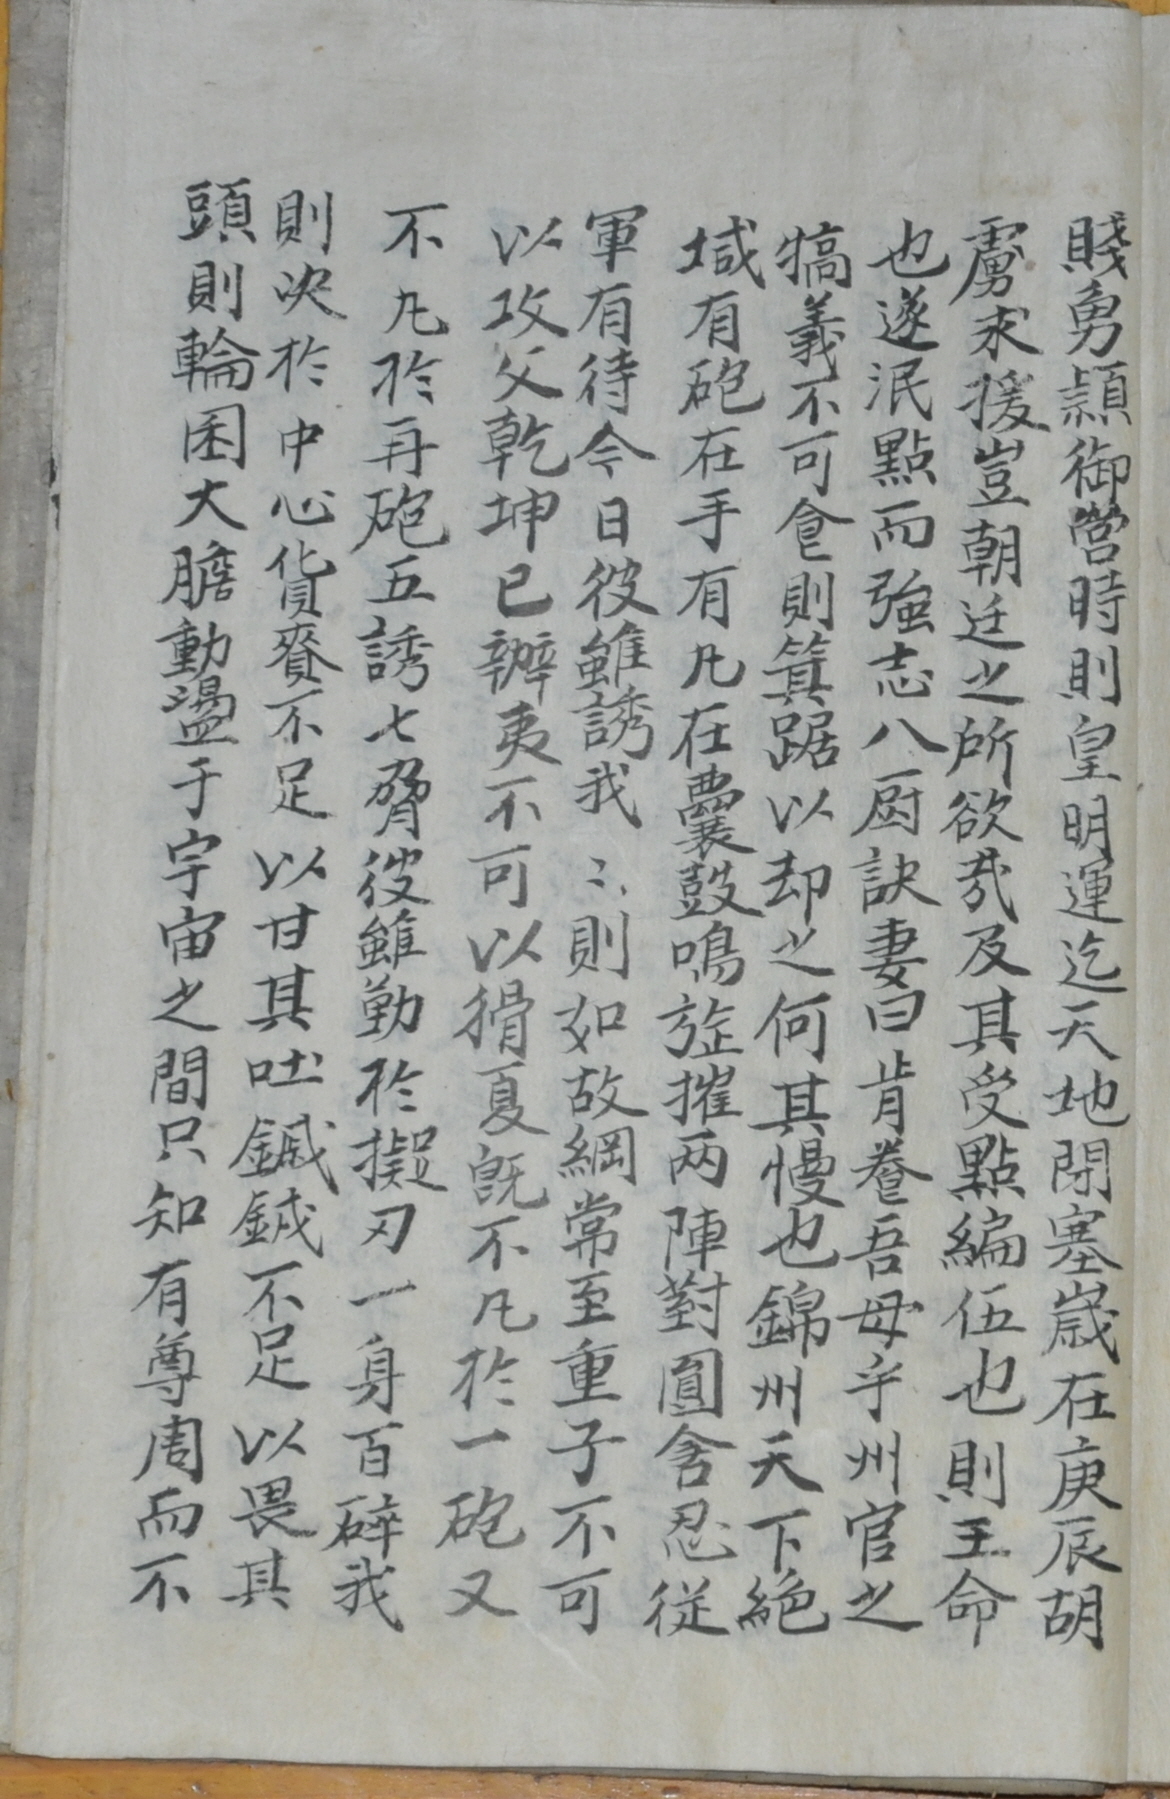 賤勇頴御營時則皇明運迄天地閉塞歲在庚辰胡
虜求援豈朝廷之所欲哉及其受點編伍也則王命
也遂泯點而強志八厨訣妻曰肯養吾母乎州官之
犒義不可食則箕踞以却之何其慢也錦州天下絕
域有砲在手有凡在囊鼓鳴旋摧两陣對圓含忍従
軍有待今日彼雖誘我〻則如故綱常至重子不可
以攻父乾坤已辦夷不可以猾夏旣不凡於一砲又
不凡於再砲五誘七脅彼雖勤於擬刃一身百碎我
則决於中心貨賚不足以甘其吐鍼鉞不足以畏其
頭則輪囷大膽動盪于宇宙之間只知有尊周而不